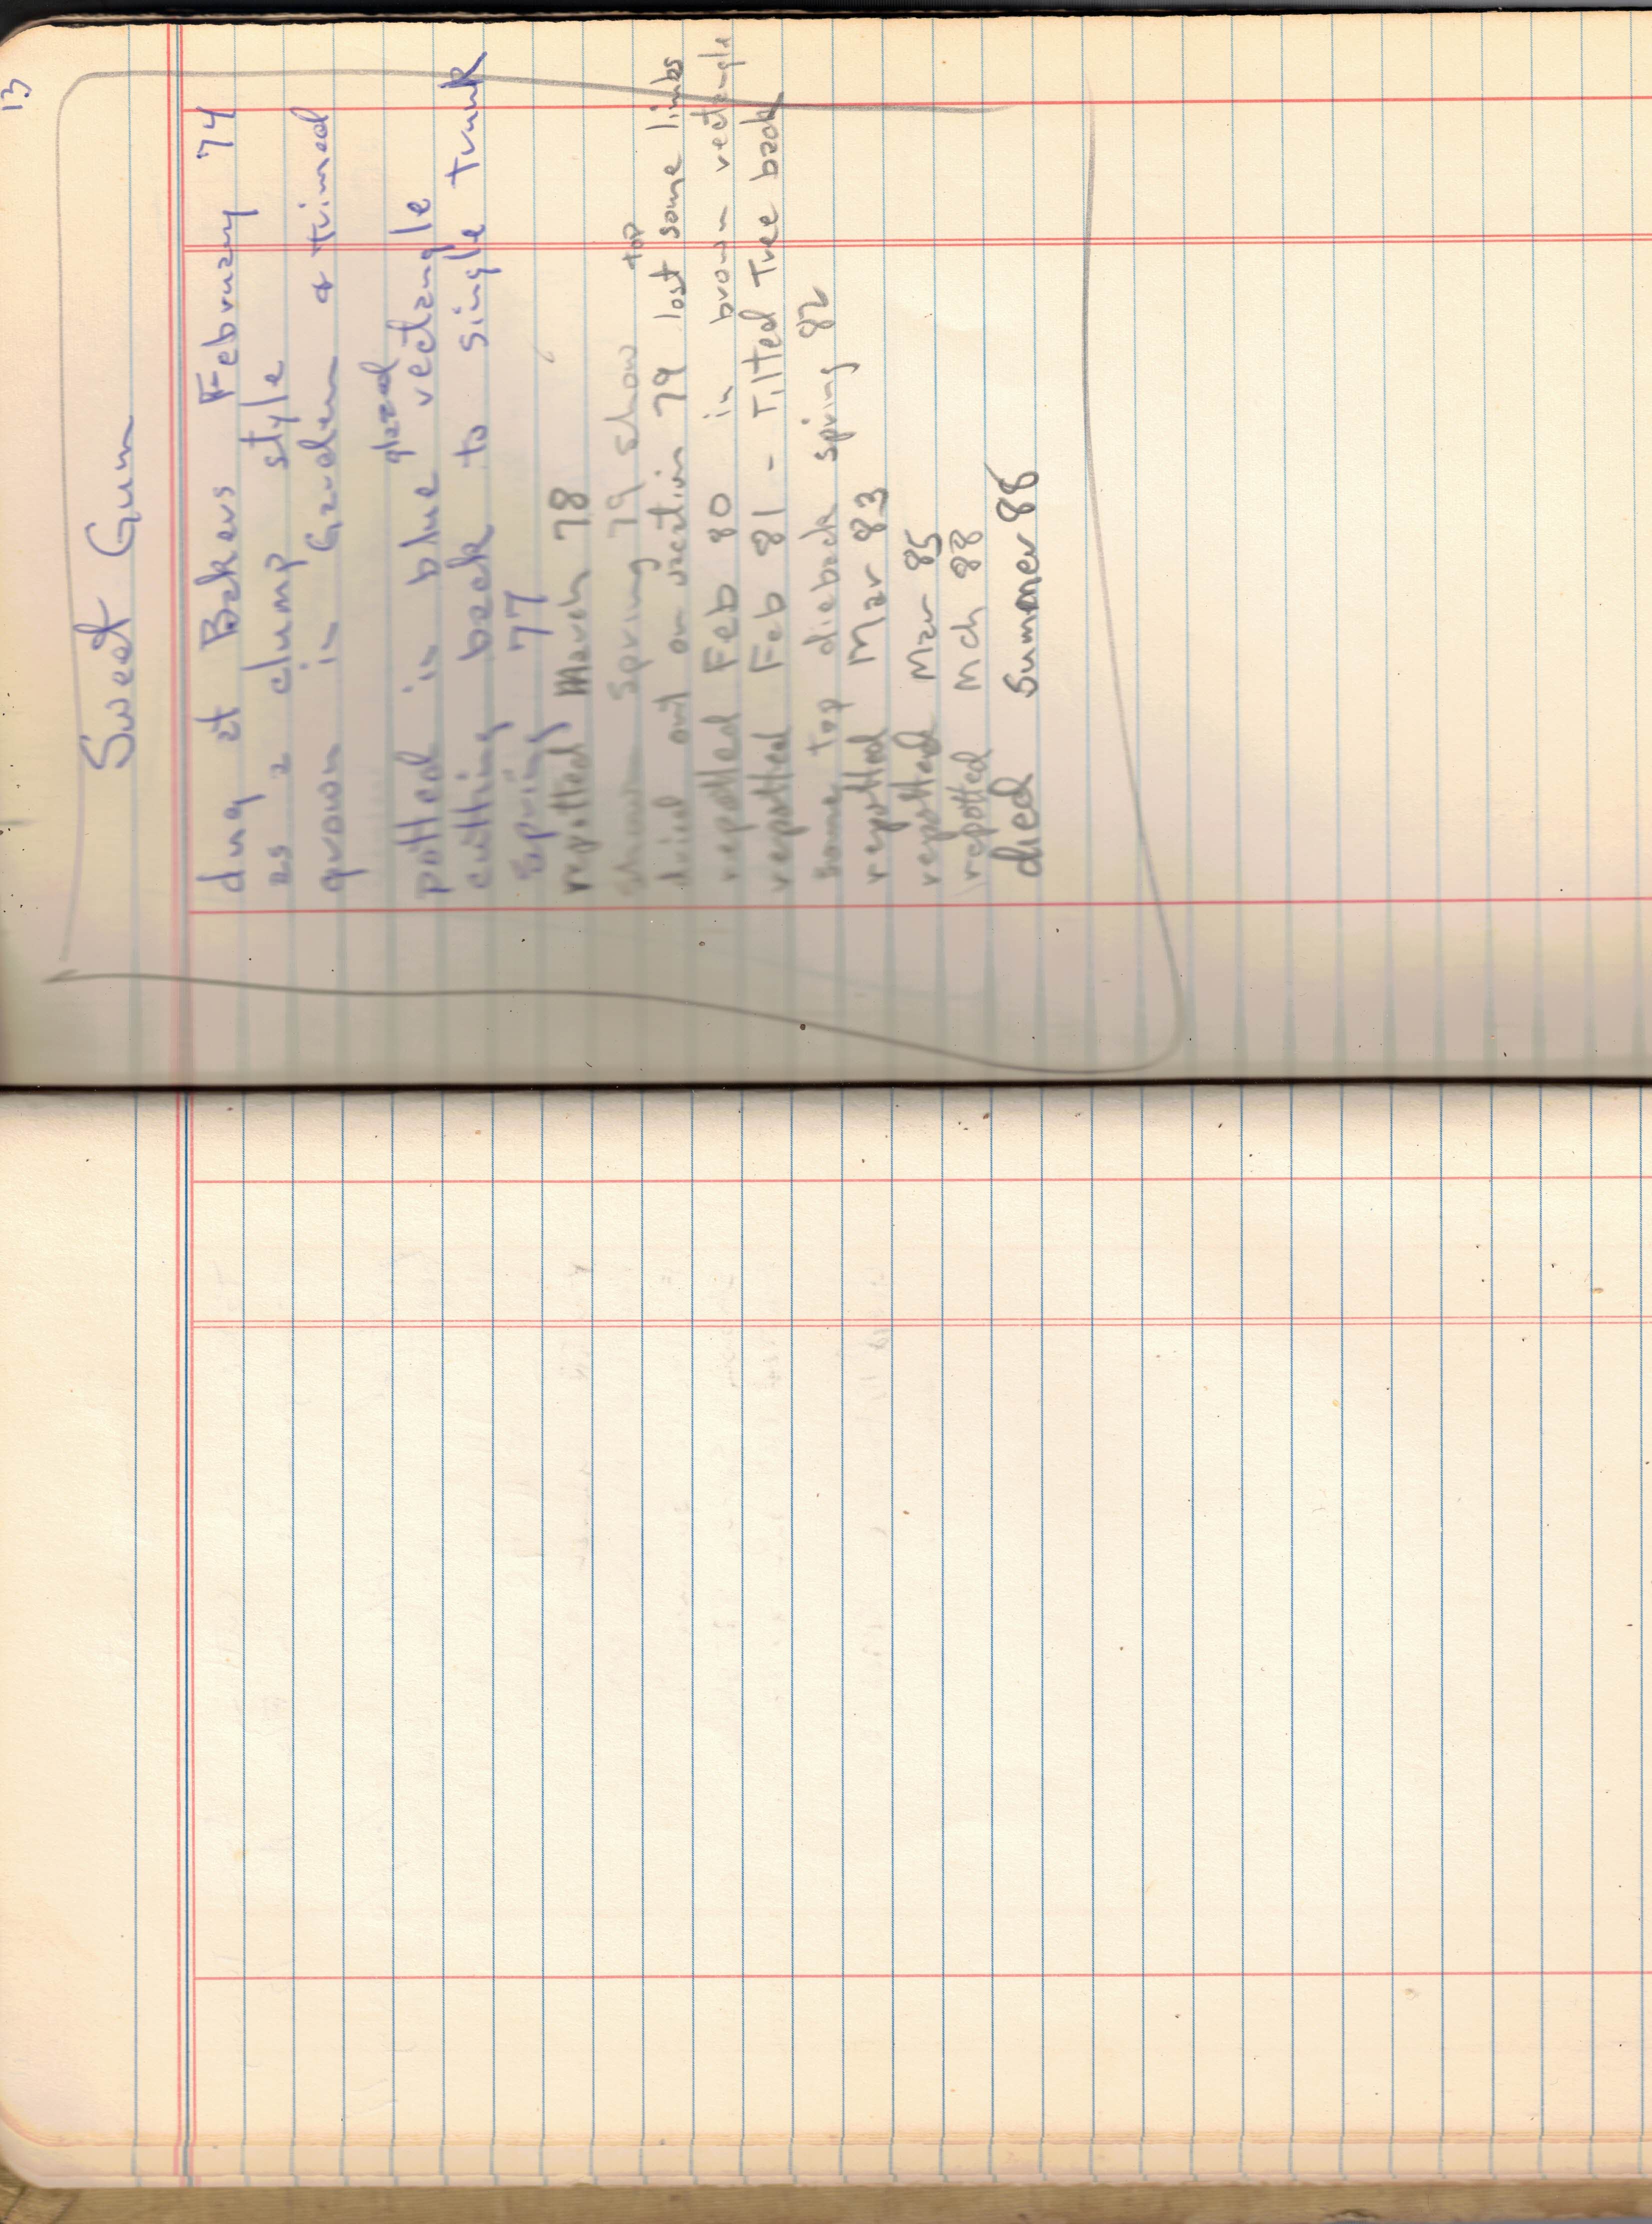 13
Sweet Gum
dug at Bakers February 74
as a clump style
grown in Garden & trimed
glazed
potted in blue rectangle
cutting back to single trunk
spring 77
repotted March 78
shown Spring 79 show
top
dried out on vacation 79 lost some limbs
repotted Feb 80 in brown rectangle
repotted Feb 81 - Tilted Tree back
some top dieback spring 82
repotted Mar 83
repotted Mar 85
repotted Mch 88
died summer 88